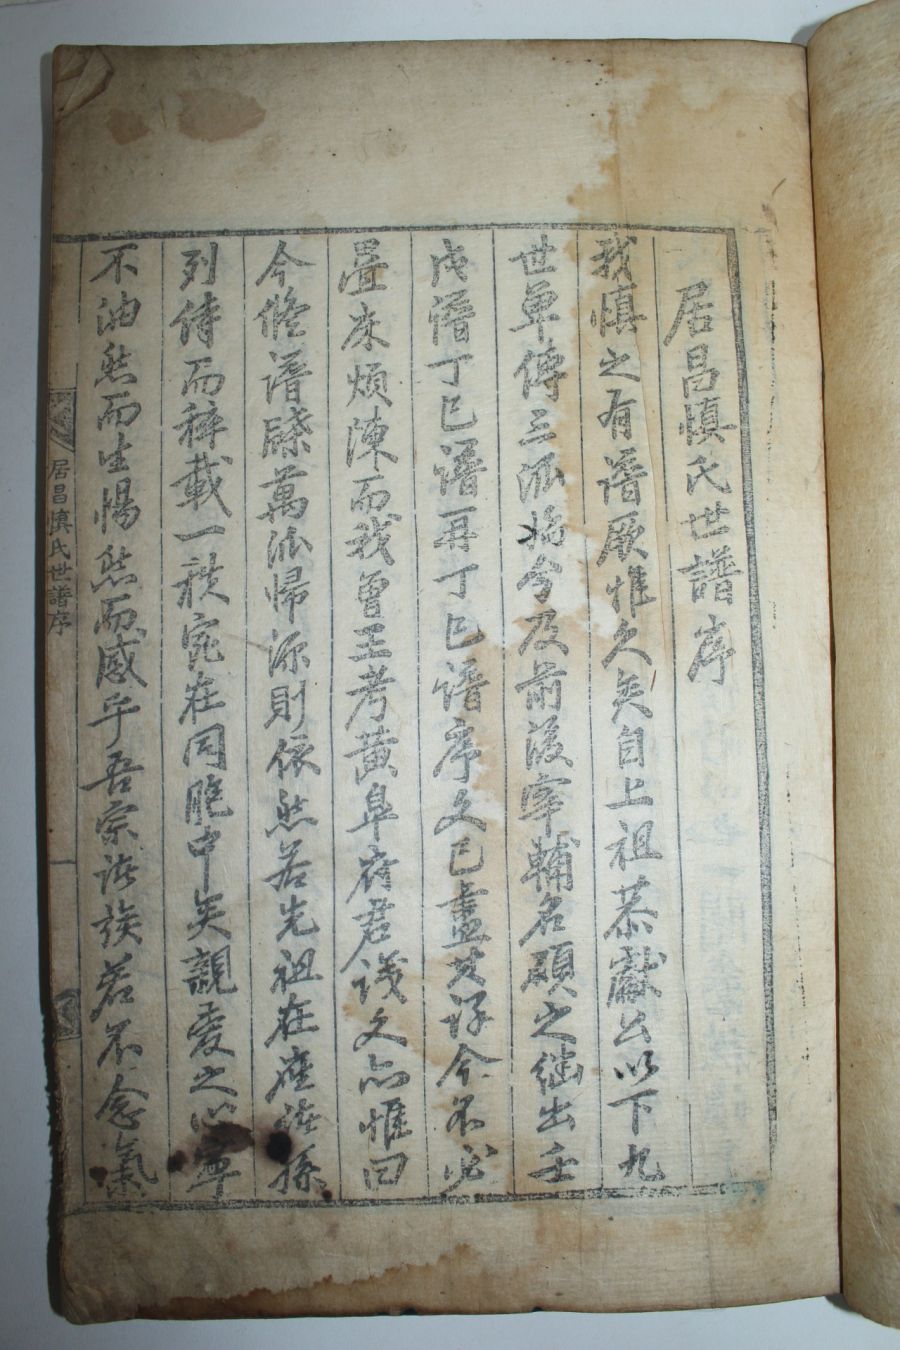 居昌愼氏世譜序
我愼之有譜厥惟久矣自上祖恭獻公以下九
世單傳三派始分及前後宰輔名碩之継出壬
戊譜丁巳譜再丁巳譜序文已盡其詳今不必
疊床煩陳而我曾王考黃皐府君議文亦惟曰
今修譜牒萬派歸源則依然若先祖在座諸孫
列侍而稡載一袟宛在同胞中矣親愛之心寧
不油然而生惕然而感乎吾宗諸族若不念氣
居昌愼氏世譜序
一